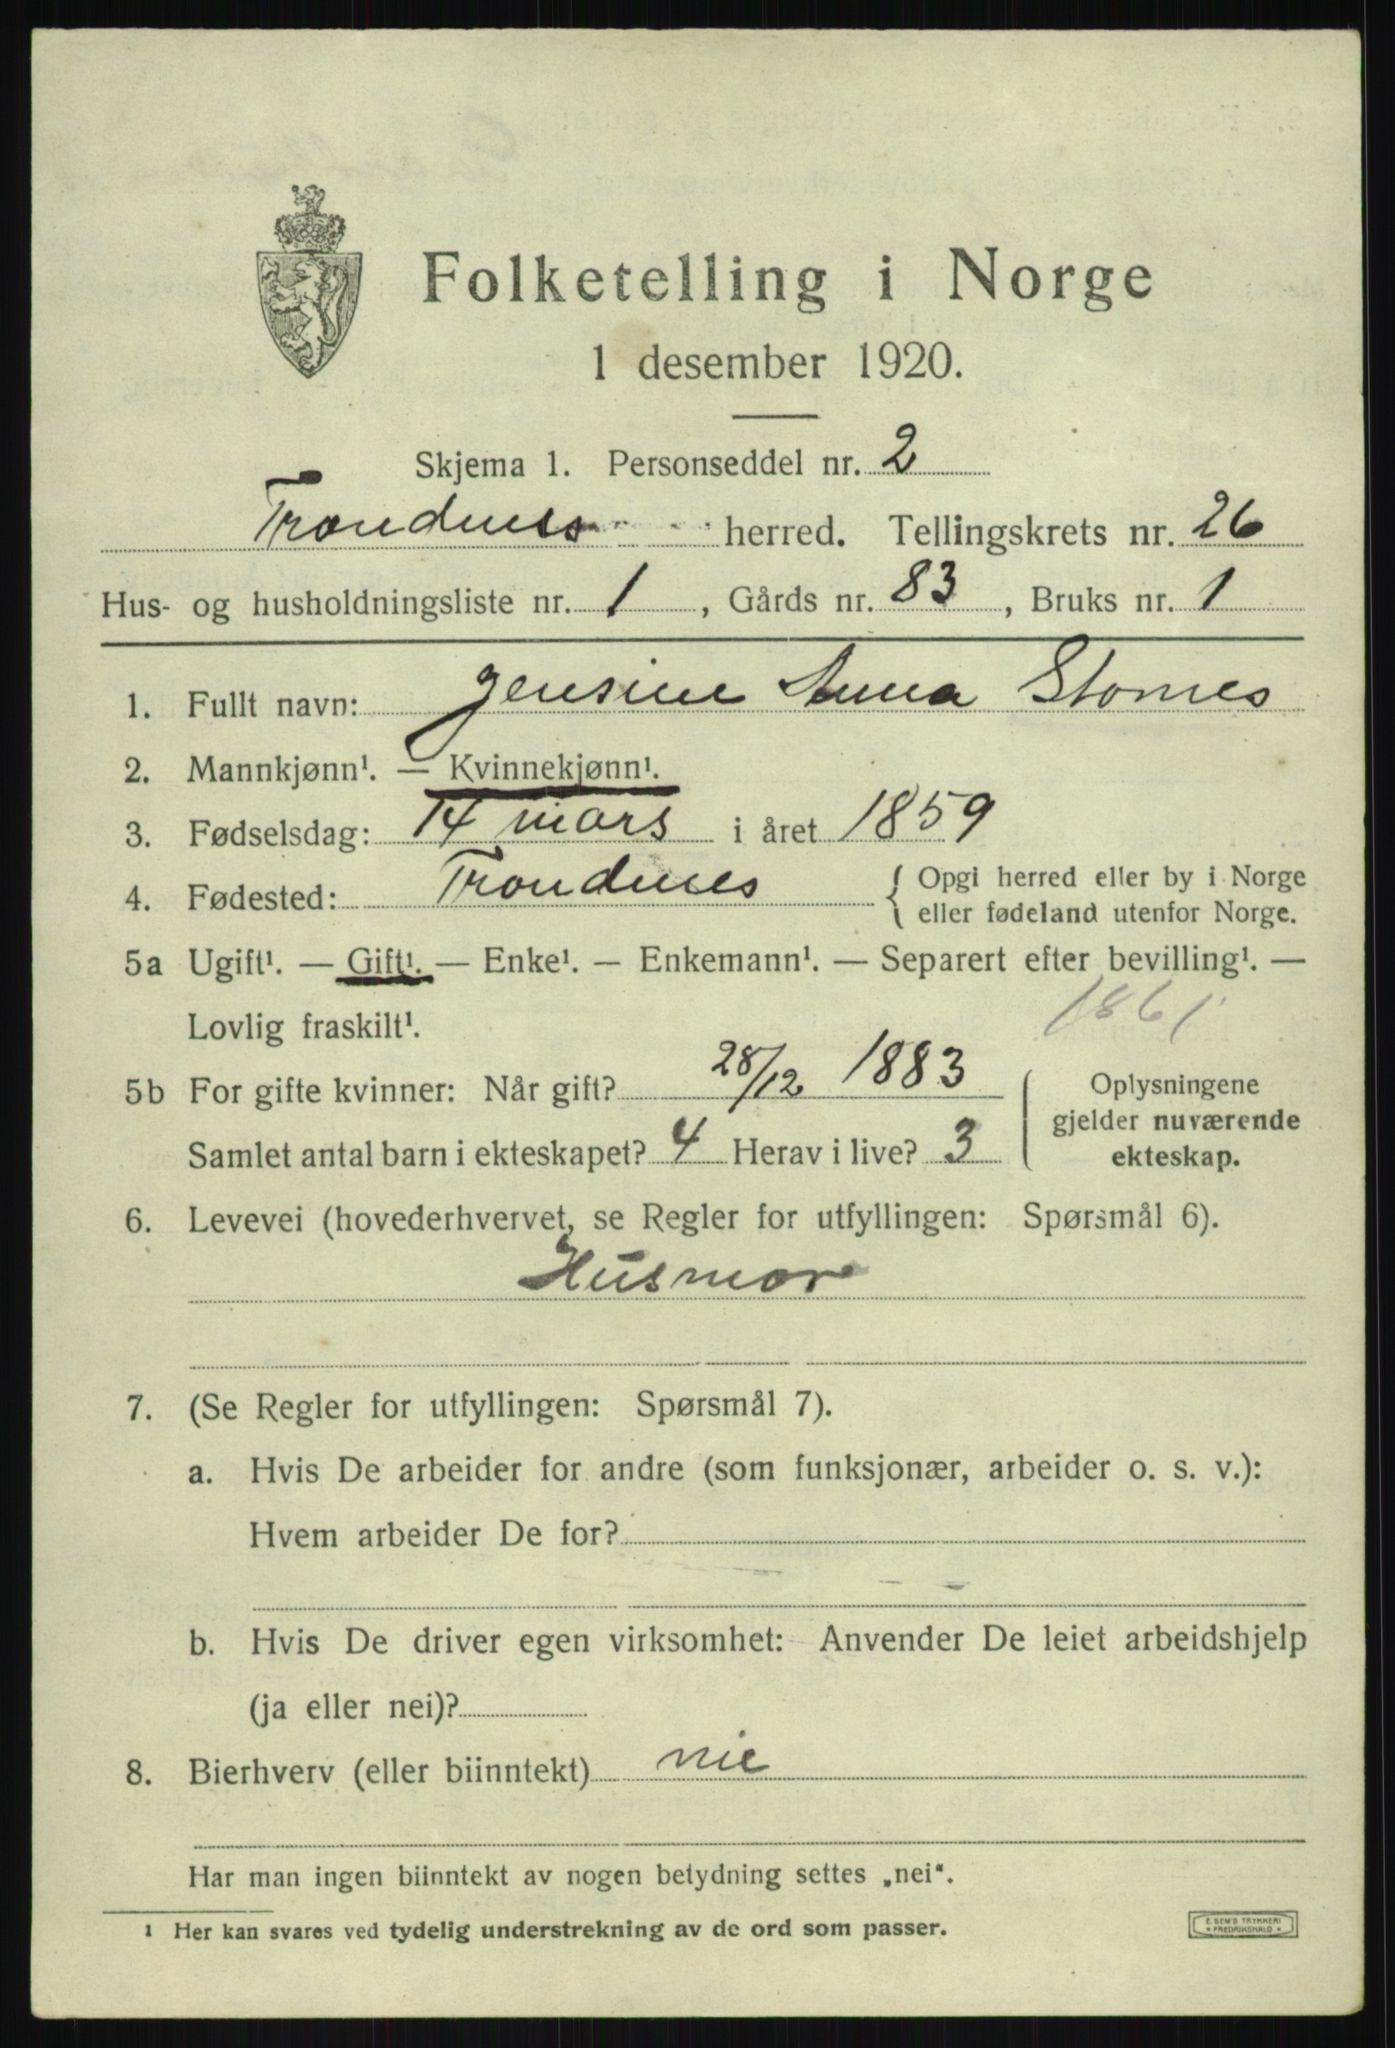 Folketelling i Norge
1 desember 1920.
Skjema 1. Personseddel nr. 2
Trondenes herred. Tellingskrets nr. 26
Hus- og husholdningsliste nr. 1, Gårds nr. 83, Bruks nr. 1
1. Fullt navn: Jensine Anna Stornes
2. Mannkjønn¹. — Kvinnekjønn¹.
3. Fødselsdag: 14 mars i året 1859
4. Fødested: Trondenes { Opgi herred eller by i Norge
eller fødeland utenfor Norge.
5a Ugift¹. — Gift¹. — Enke¹. — Enkemann¹. — Separert efter bevilling¹. —
Lovlig fraskilt¹.
1861
5b For gifte kvinner: Når gift? 28/12 1883
Samlet antal barn i ekteskapet? 4 Herav i live? 3
Oplysningene
gjelder nuværende
ekteskap.
6. Levevei (hovederhvervet, se Regler for utfyllingen: Spørsmål 6).
Husmor
7. (Se Regler for utfyllingen: Spørsmål 7).
a. Hvis De arbeider for andre (som funksjonær, arbeider o. s. v.):
Hvem arbeider De for?
b. Hvis De driver egen virksomhet: Anvender De leiet arbeidshjelp
(ja eller nei)?
8. Bierhverv (eller biinntekt) nie
Har man ingen biinntekt av nogen betydning settes „nei“.
¹ Her kan svares ved tydelig understrekning av de ord som passer.
E. SEM'S TRYKKERI
FREDRIKSHALD